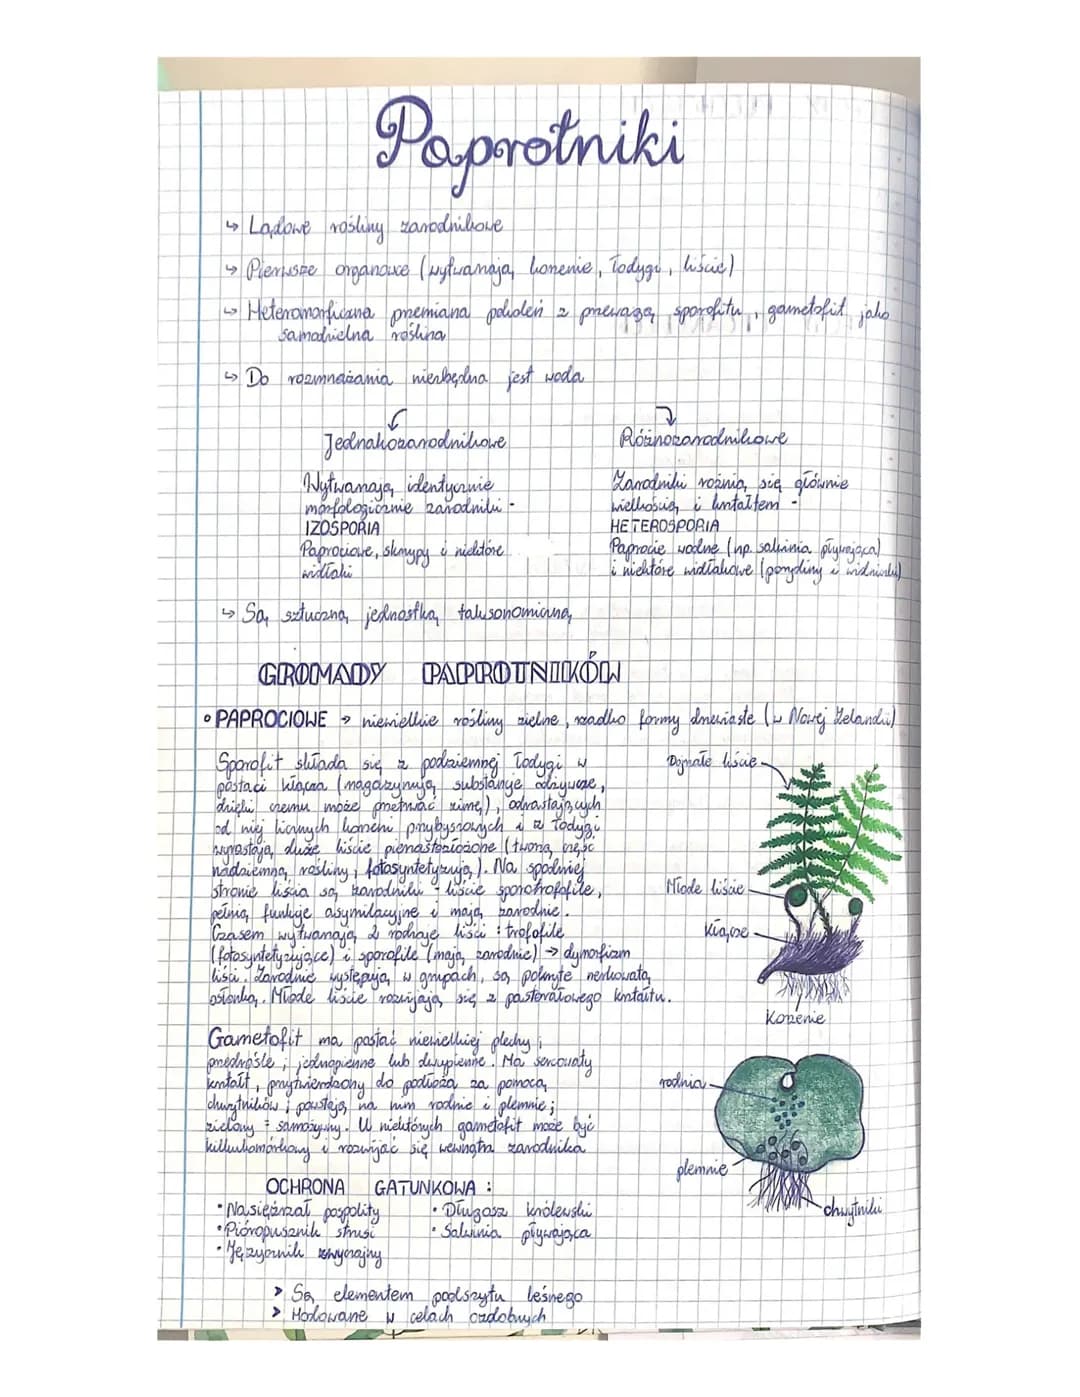 Paprotniki
↳ Lądowe rośliny zarodnikowe
↳ Pierwsze organowce (wytwarzają korzenie, łodygi, liście)
↳ Heteromorficzna przemiana pokoleń z przewagą sporofitu, gametofit jako
samodzielna roślina
↳ Do rozmnażania niezbędna jest woda
Jednakozarodnikowe
Wytwarzają identycznie
morfologicznie zarodniki -
IZOSPORIA
Paprociowe, skrzypy i niektóre
widłaki
Różnozarodnikowe
Zarodniki różnią się głównie
wielkością i kształtem -
HETEROSPORIA
Paprocie wodne (np. salwinia pływająca)
i niektóre widłakowe (porybliny i widliczki)
↳ Są sztuczną jednostką taksonomiczną
GROMADY PAPROTNIKÓW
• PAPROCIOWE → niewielkie rośliny zielne, rzadko formy drzewiaste (w Nowej Zelandii)
Sporofit składa się z podziemnej łodygi w
postaci kłącza (magazynują substancje odżywcze,
dzięki czemu może przetrwać zimę), odrastających
od niej licznych korzeni przybyszowych i z łodygi
wyrastają duże liście pierzastozłożone (tworzą część
nadziemną rośliny, fotosyntetyzują). Na spodniej
stronie liścia są zarodniki - liście sporotrofofile,
pełnią funkcje asymilacyjne i mają zarodnie.
Czasem wytwarzają 2 rodzaje liści: trofofile
(fotosyntetyzujące) i sporofile (mają zarodnie) → dymorfizm
liści. Zarodnie występują w grupach, są pokryte nerkowatą
osłonką. Młode liście rozwijają się z pastorałowego kształtu.
Dojrzałe liście
Młode liście
Kłącze
Korzenie
Gametofit ma postać niewielkiej plechy;
przedrośle; jednopienne lub dwupienne. Ma sercowaty
kształt, przytwierdzony do podłoża za pomocą
chwytników; powstają na nim rodnie i plemnie;
zielony = samożywny. U niektórych gametofit może być
kilkukomórkowy i rozwijać się wewnątrz zarodnika
rodnia
plemnie
chwytniki
OCHRONA GATUNKOWA:
• Nasięźrzał pospolity
• Pióropusznik strusi
• Języcznik zwyczajny
• Długosz królewski
• Salwinia pływająca
> Są elementem podszytu leśnego
> Hodowane w celach ozdobnych